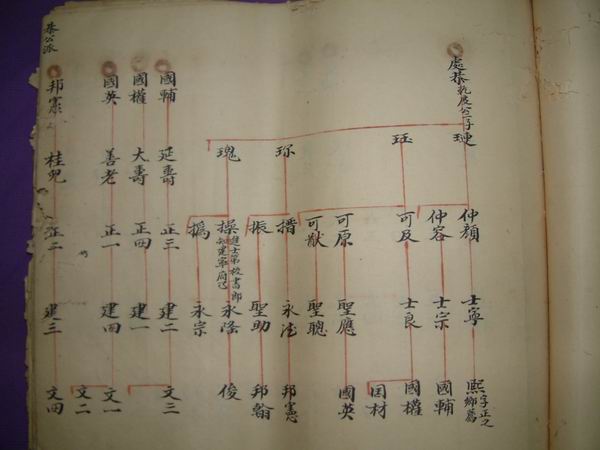 處恭 乾度公二子
璉
仲顏
士寧
熙 字正之 鄉薦
仲容
士宗
國輔
珏
可及
士良
國權
材
可原
聖應
國英
可猷
聖聰
珎
措
永
邦憲
振
聖助
邦翰
瑰
操 進士第校書郎 知建寧
永隆
俊
撝
永宗
國輔
延壽
正三
建二
文三
國權
大壽
正四
建一
國英
善老
正一
建四
文一
文二
邦憲
桂兒
正二
建三
文四
恭公派